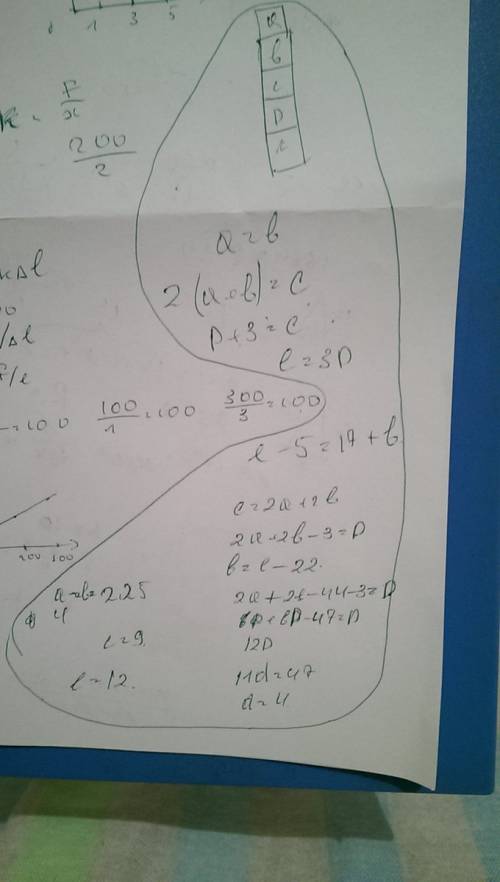 0 1 3 5
a
b
c
D
e
k = F/x
200/2
a = b
2(a+b) = c
D+3 = c
e = 3D
kΔl
/Δl
F/e
= 100 100/1 = 100 300/3 = 100
e - 5 = 17 + b
200 100
c = 2a + 2b
2a + 2b - 3 = D
b = e - 22
2a + 2e - 44 - 3 = D
12D
11d = 47
d = 4
a = b = 2.25
4
c = 9
e = 12.